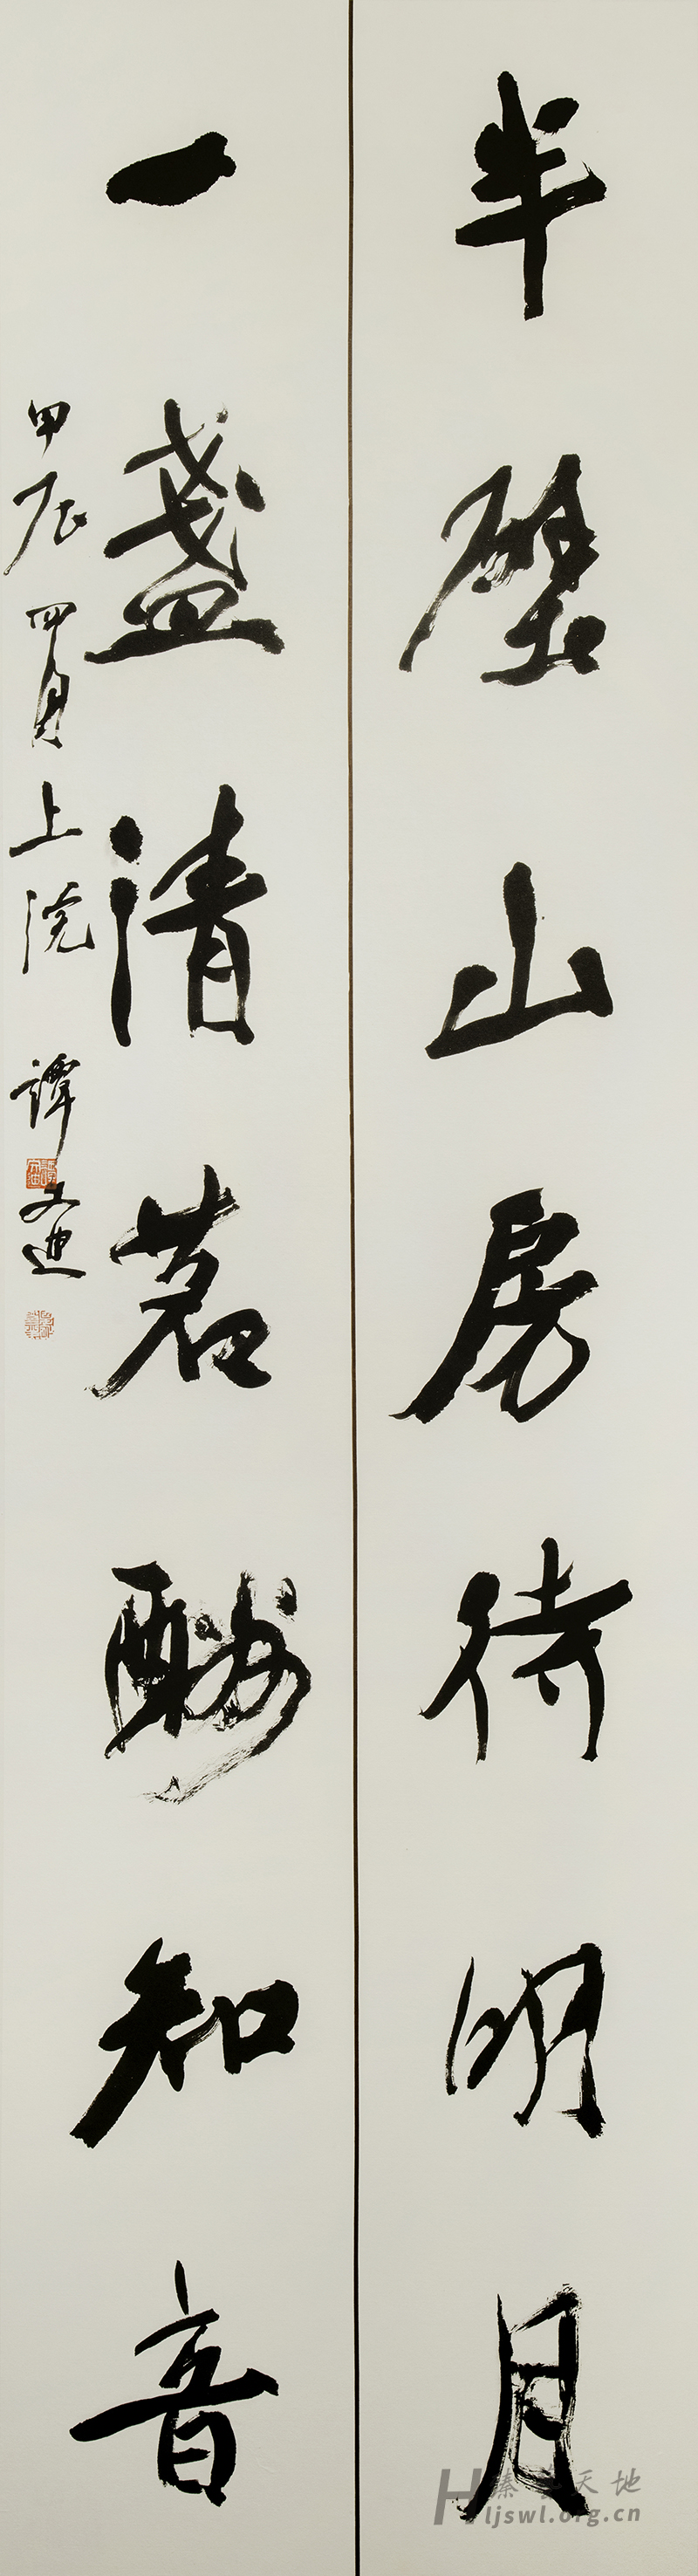 半壁山房待明月
一盏清茗酬知音
甲辰四月上浣 譚文迪
臻 天地
ljswl.org.cn